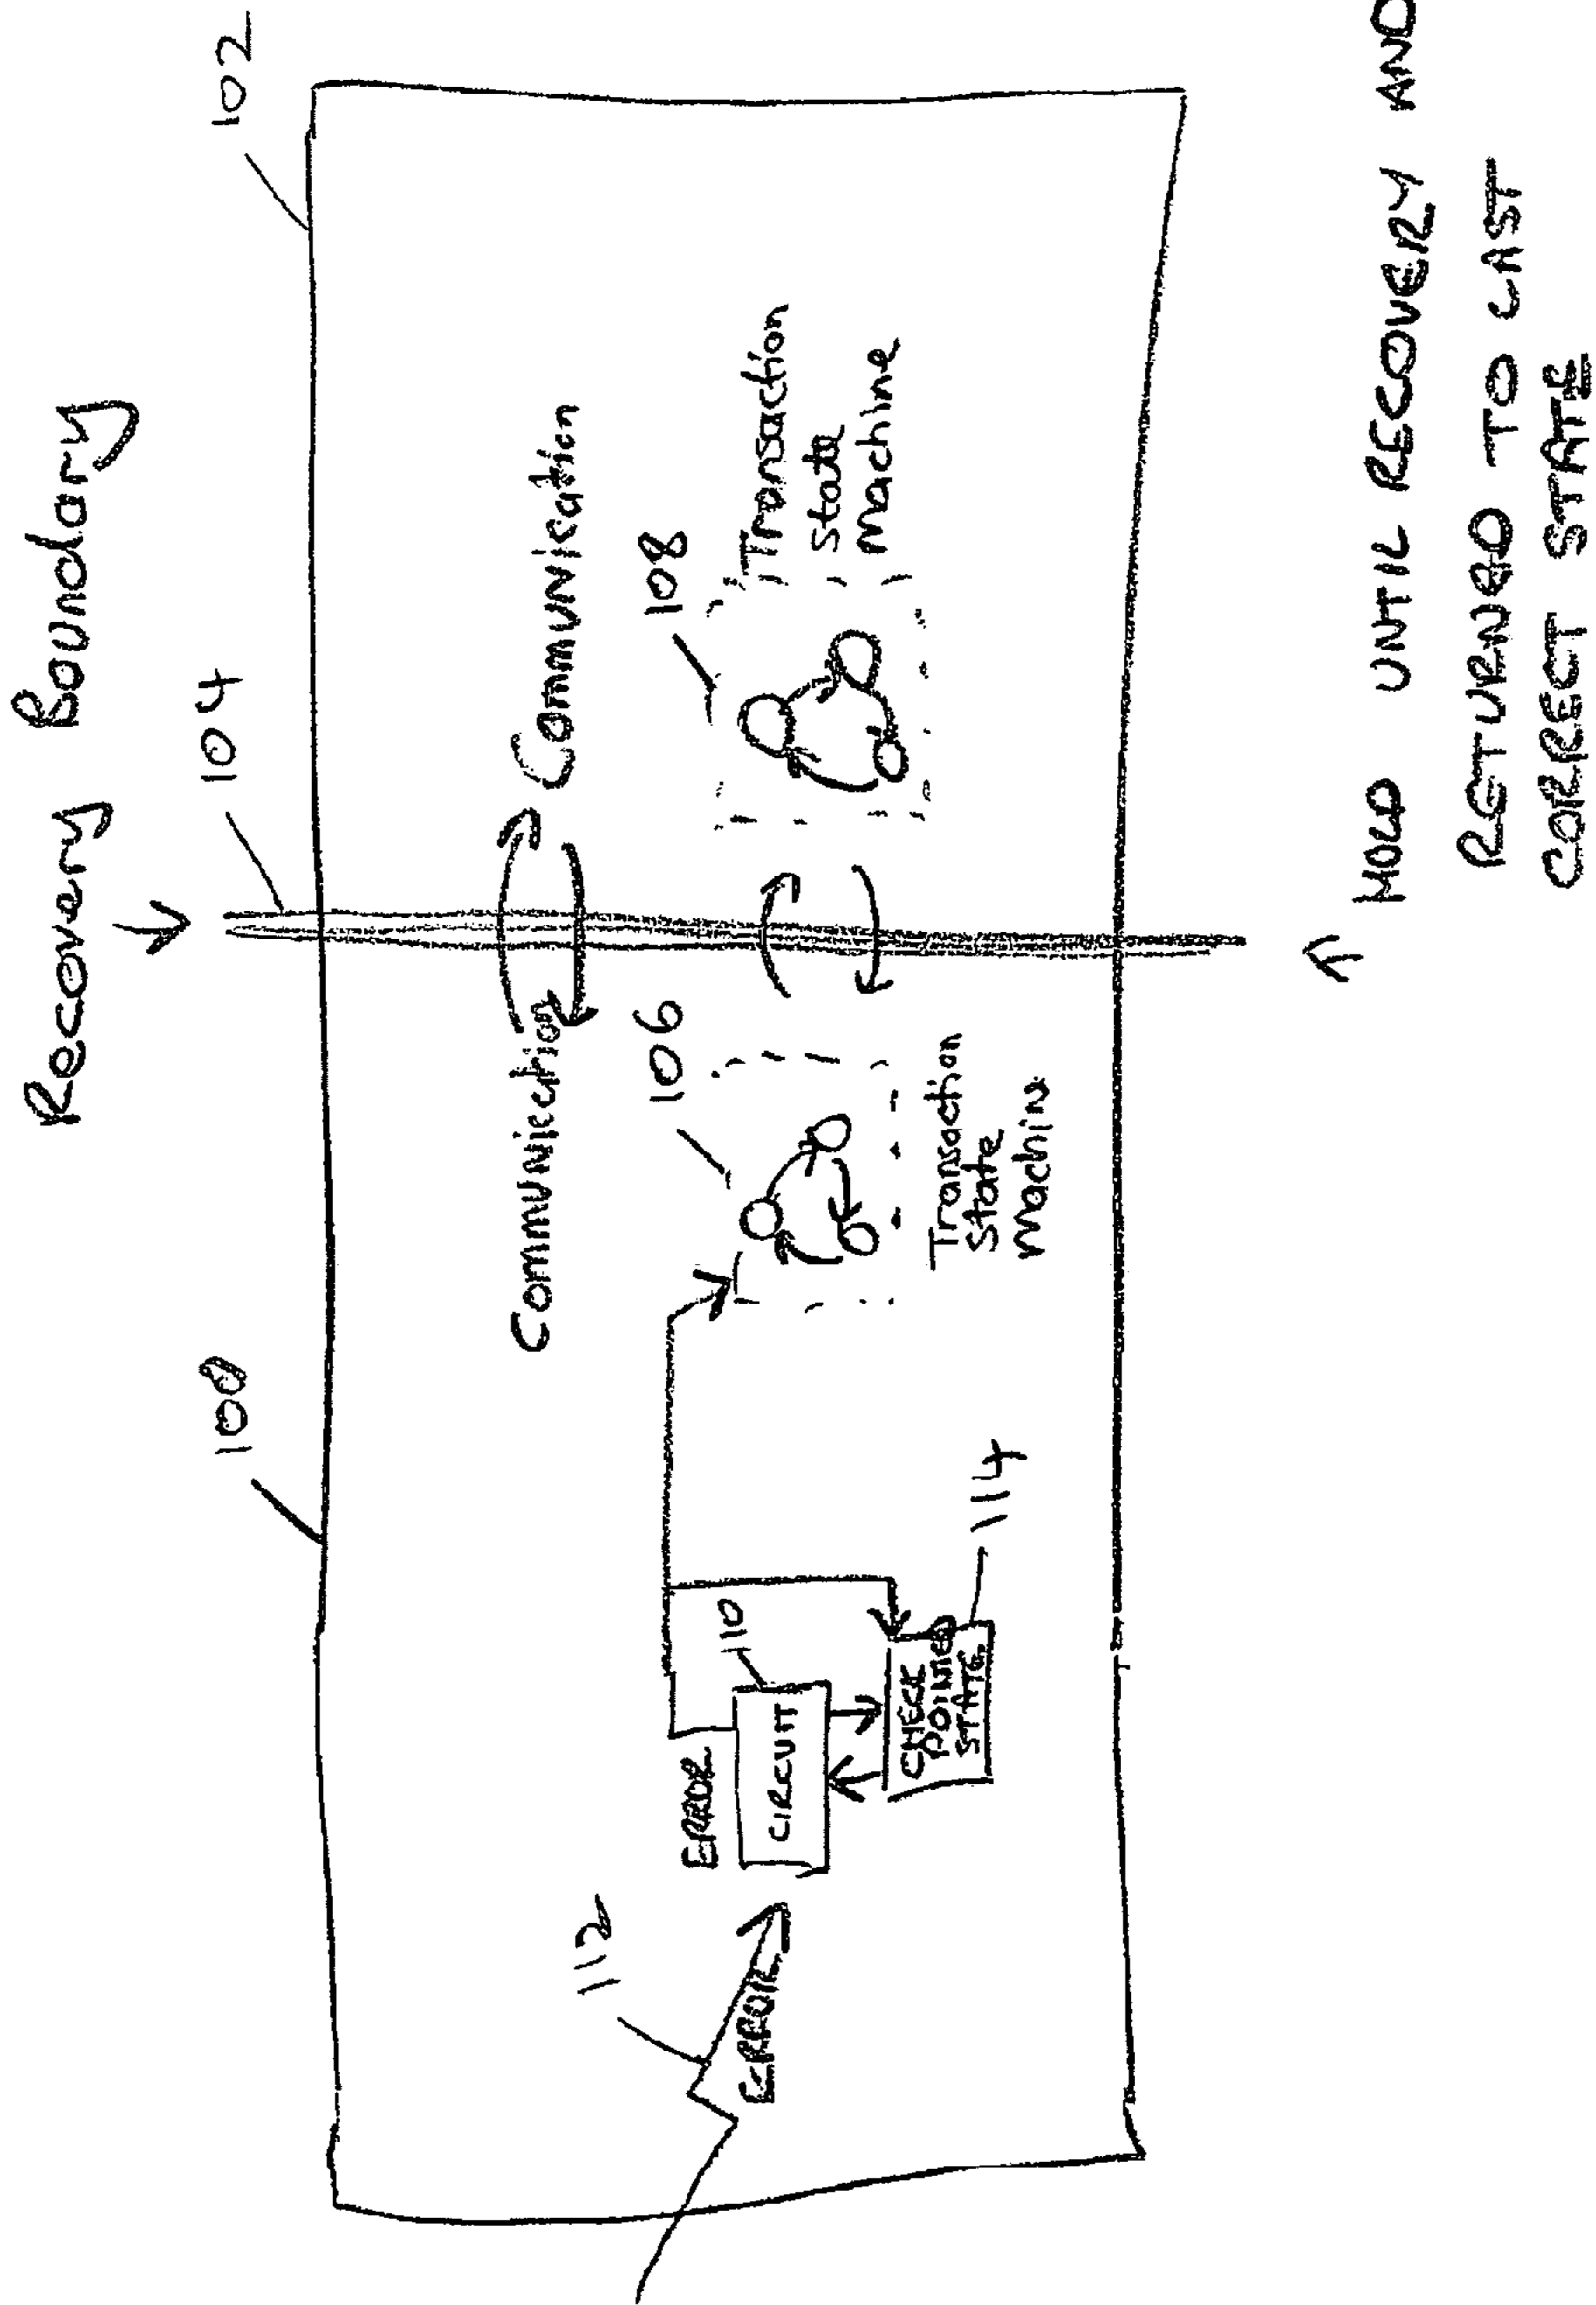 Recovery Boundary
100
104
102
Communiection
Communication
106
108
Transaction
State
Machin
Transaction
State
Machine
112
ERROR
ERROR
110
CIRCUIT
CHECK
POINTED
STATE
114
HOLD UNTIL RECOVERY AND
RETURNED TO CAST
CORRECT STATE